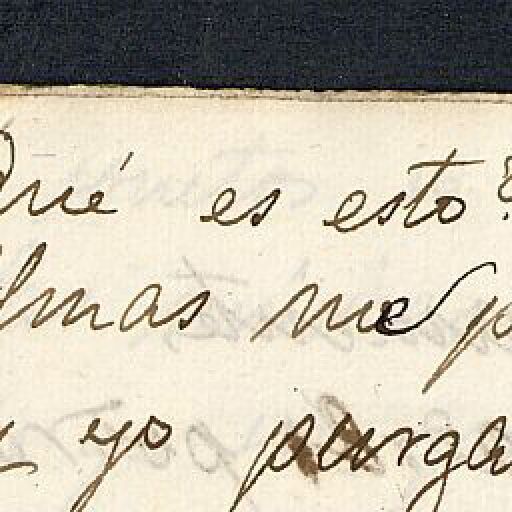 Qué es esto?
Almas me p
y yo purga